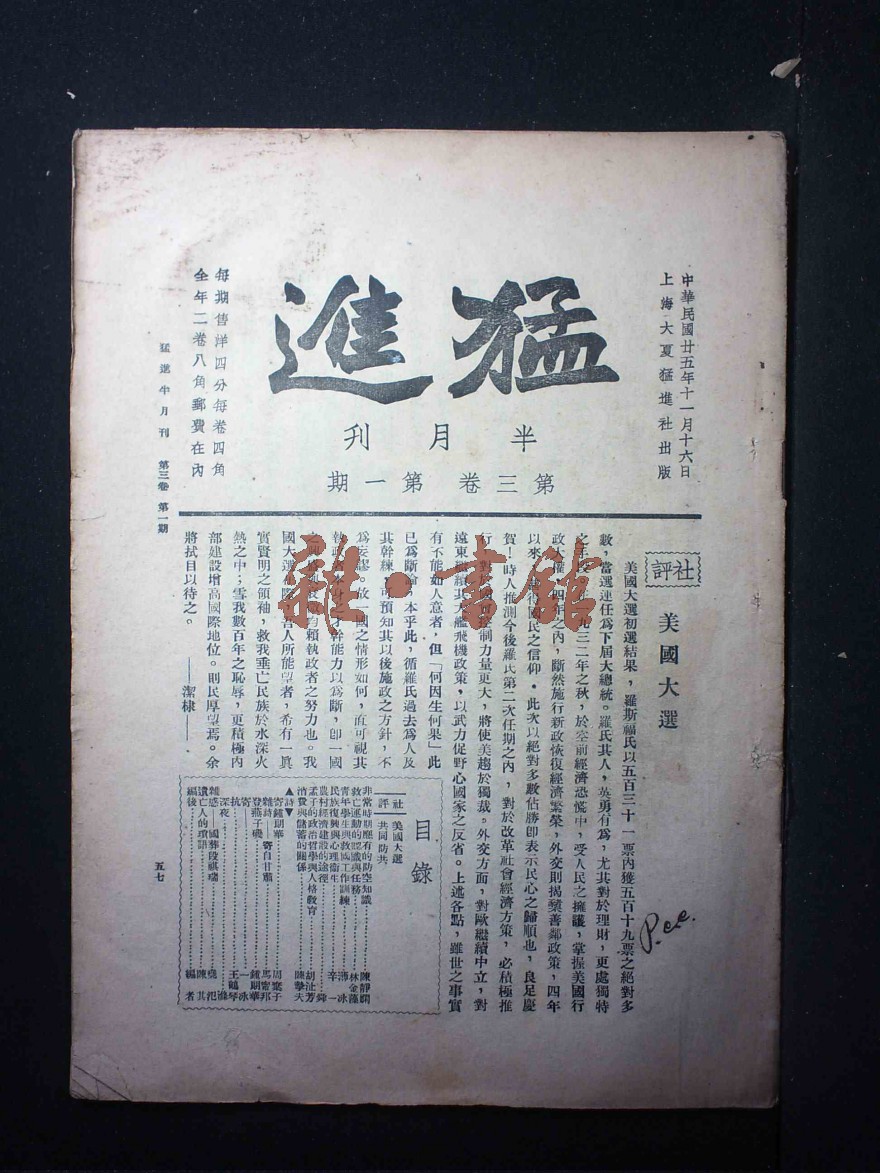 中華民國廿五年十一月十六日
上海大夏猛進社出版
猛進
半月刊
第三卷 第一期
每期售洋四分每卷四角
全年二卷八角郵費在內
猛進半月刊 第三卷 第一期
社評
美國大選
美國大選初選結果,羅斯福氏以五百三十一票內獲五百十九票之絕對多
數,當選連任為下屆大總統。羅氏其人,英勇有為,尤其對於理財,更處獨特
九三二年之秋,於空前經濟恐慌中,受人民之擁護,掌握美國行
政大權,四年之內,斷然施行新政恢復經濟繁榮,外交則揭櫫善鄰政策,四年
以來,國民之信仰。此次以絕對多數佔勝卽表示民心之歸順也,良足慶
賀!時人推測今後羅氏第二次任期之內,對於改革社會經濟方策,必積極推
行,對於國會控制力量更大,將使美趨於獨裁。外交方面,對歐繼續中立,對
遠東繼續其大艦飛機政策,以武力促野心國家之反省。上述各點,雖世之事實
有不能如人意者,但「何因生何果」此
已為斷論,本乎此,循羅氏過去為人及
其幹練,可預知其以後施政之方針,不
為妄謬。故一國之情形如何,直可視其
執政者本身之才幹能力以為斷,卽一國
均賴執政者之努力也。我
國大選在際,吾人所能望者,希有一眞
實賢明之領袖,救我垂亡民族於水深火
熱之中;雪我數百年之恥辱,更積極內
部建設增高國際地位。則民厚望焉。余
將拭目以待之。
——潔棣——
目錄
社評
美國大選
共同防共
非常時期應有的防空知識 陳靜嫻
救亡運動的認識與任務 林金藻
青年學生與救國工作訓練 薄冰
民族復興與心理衞生 辛一
農村經濟建設的途徑 舜
孟子的政治哲學與人格敎育 胡沚芳
消費與儲蓄的關係 陳摯夫
▲詩▼
寄鍾期華 周棄子
雜詩——寄自甘肅 馬甯邦
登燕子磯 鍾期華
寄 一冰
抗 王鶴琴
深夜
雜感——國葬段祺瑞
遺亡人的瑣語 陳其
編後 編者
五七
P.e.e.
雜·書館